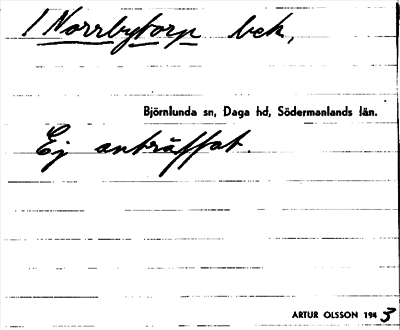 / Norrbytorp bek,
Björnlunda sn, Daga hd, Södermanlands län.
Ej anträffat.
ARTUR OLSSON 1943